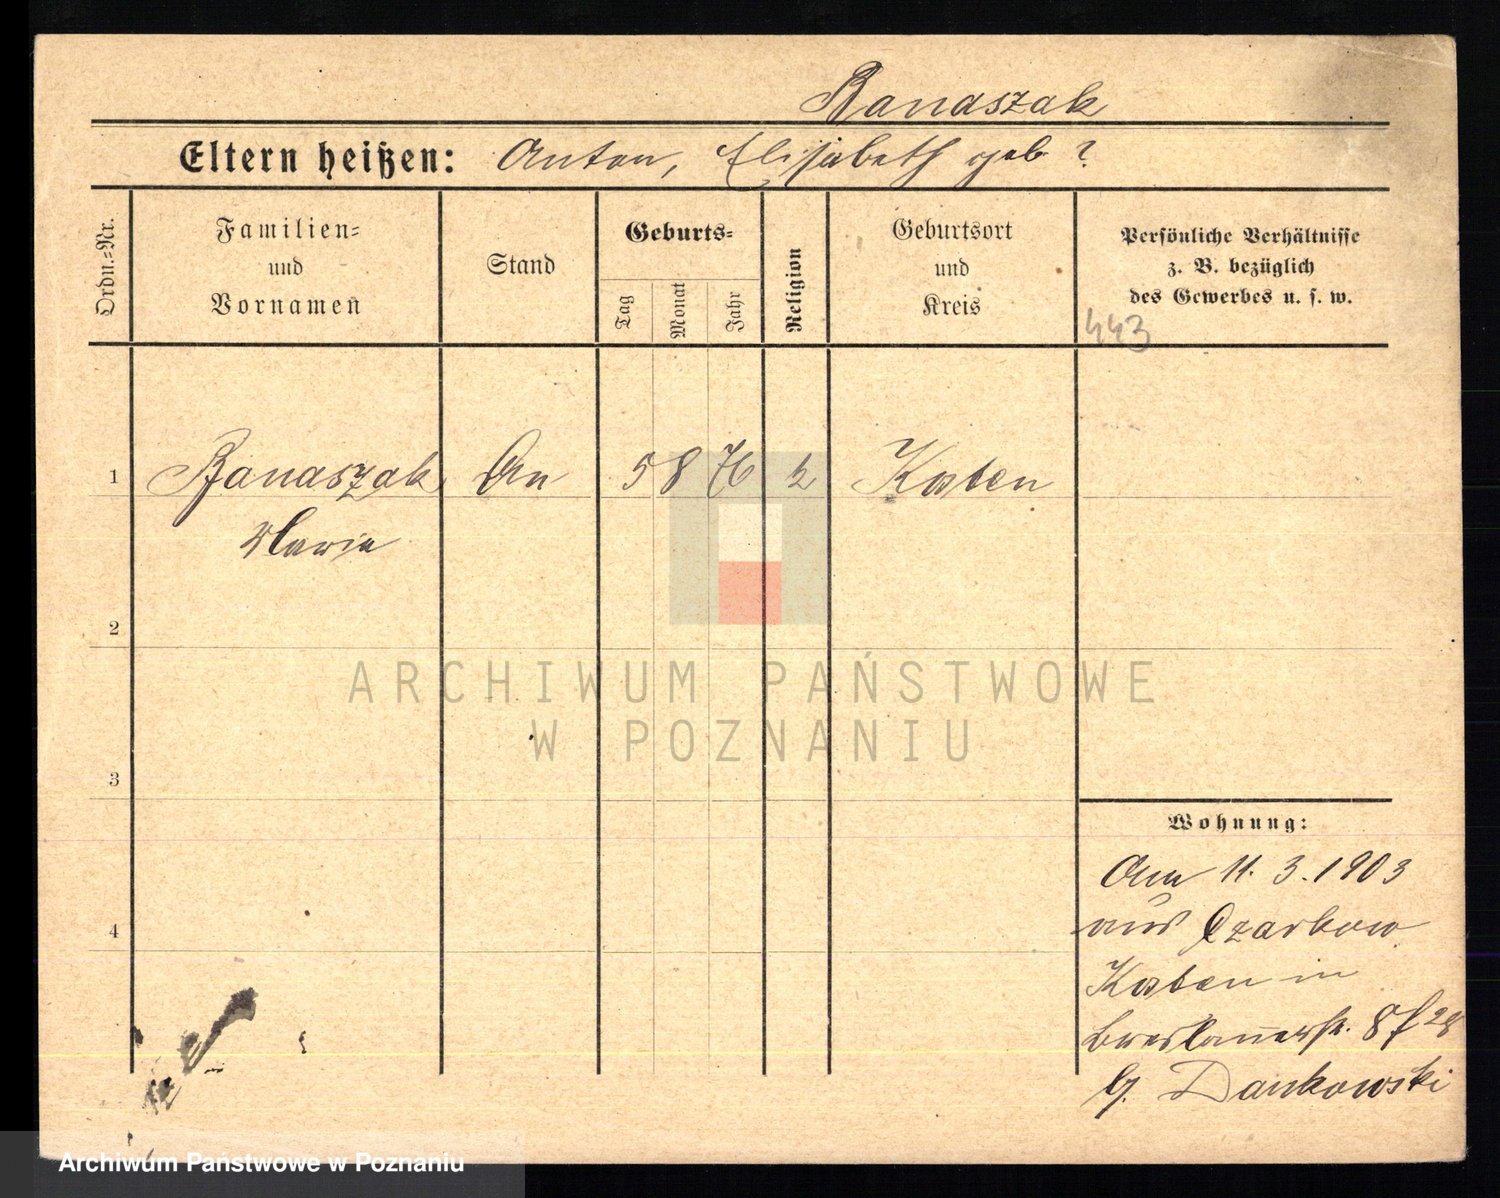 Banaszak
Eltern heißen: Anton, Elisabeth geb ?
Ordn.=Nr.
Familien=
und
Vornamen
Stand
Geburts=
Tag
Monat
Jahr
Religion
Geburtsort
und
Kreis
Persönliche Verhältnisse
z. B. bezüglich
des Gewerbes u. s. w.
443
1 Banaszak 5 8 76 2 Kosten
Maria
2
3
4
ARCHIWUM PAŃSTWOWE
W POZNANIU
Wohnung:
Am 11. 3. 1903
aus Czarkow
Kosten in
Breslauerstr. 8
G. Dankowski
Archiwum Państwowe w Poznaniu